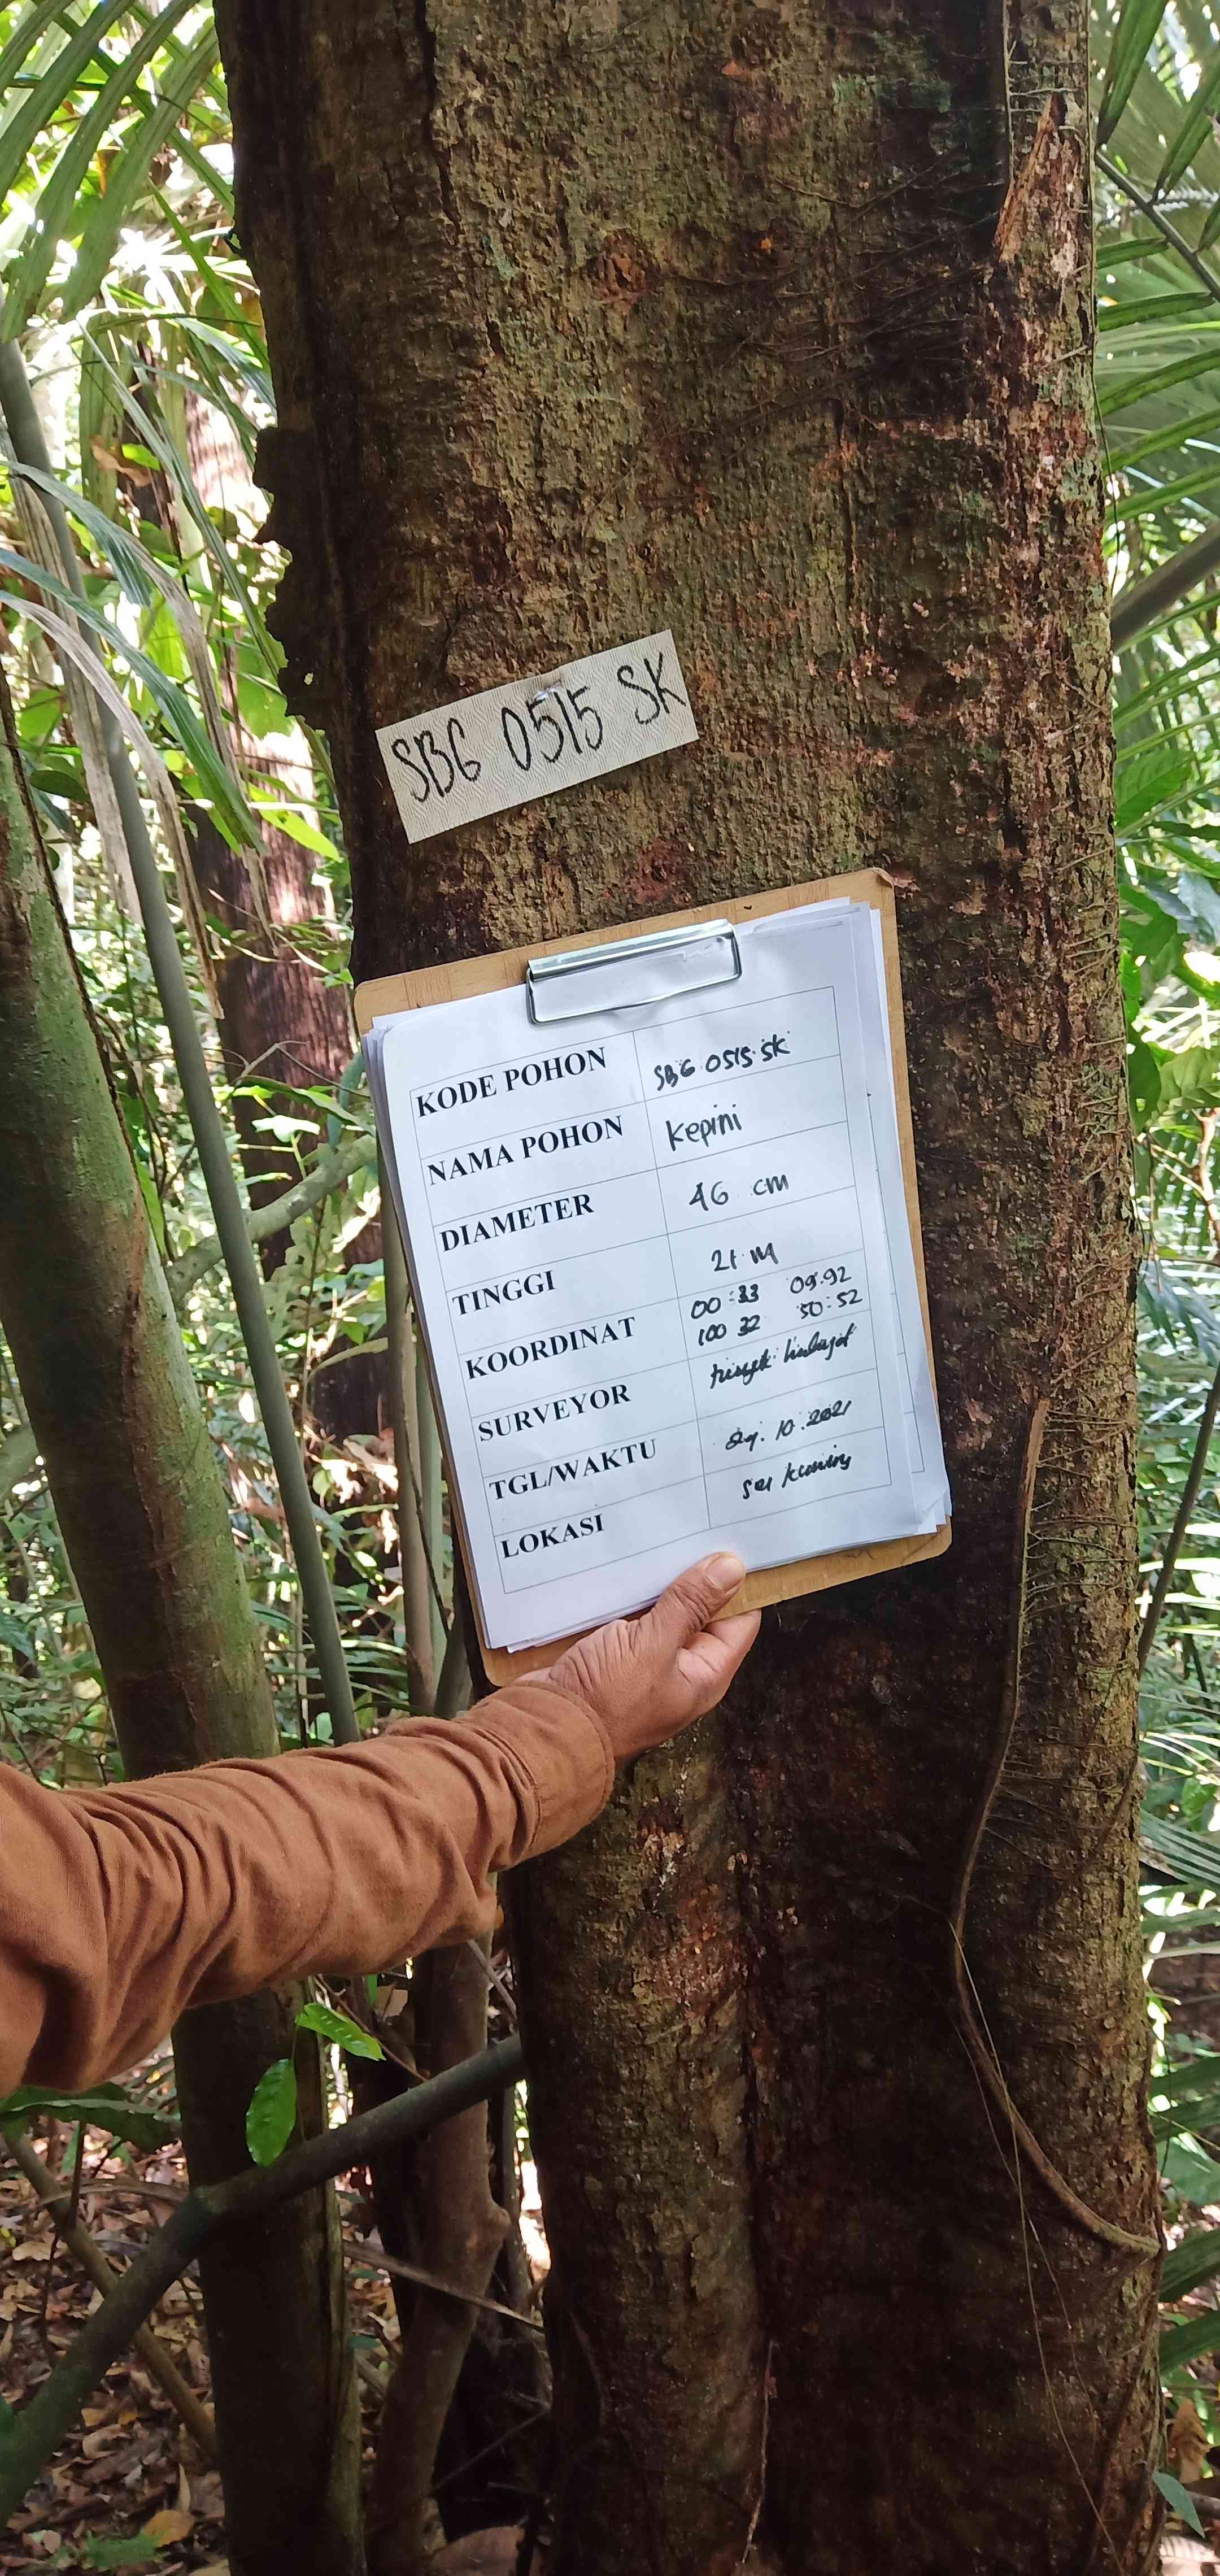 SBG 0515 SK
KODE POHON SBG 0515 SK
NAMA POHON Kepini
DIAMETER 46 cm
TINGGI 21 M
KOORDINAT 00 33 09.92
100 32 50.52
SURVEYOR
TGL/WAKTU 10.2021
LOKASI sei kuning